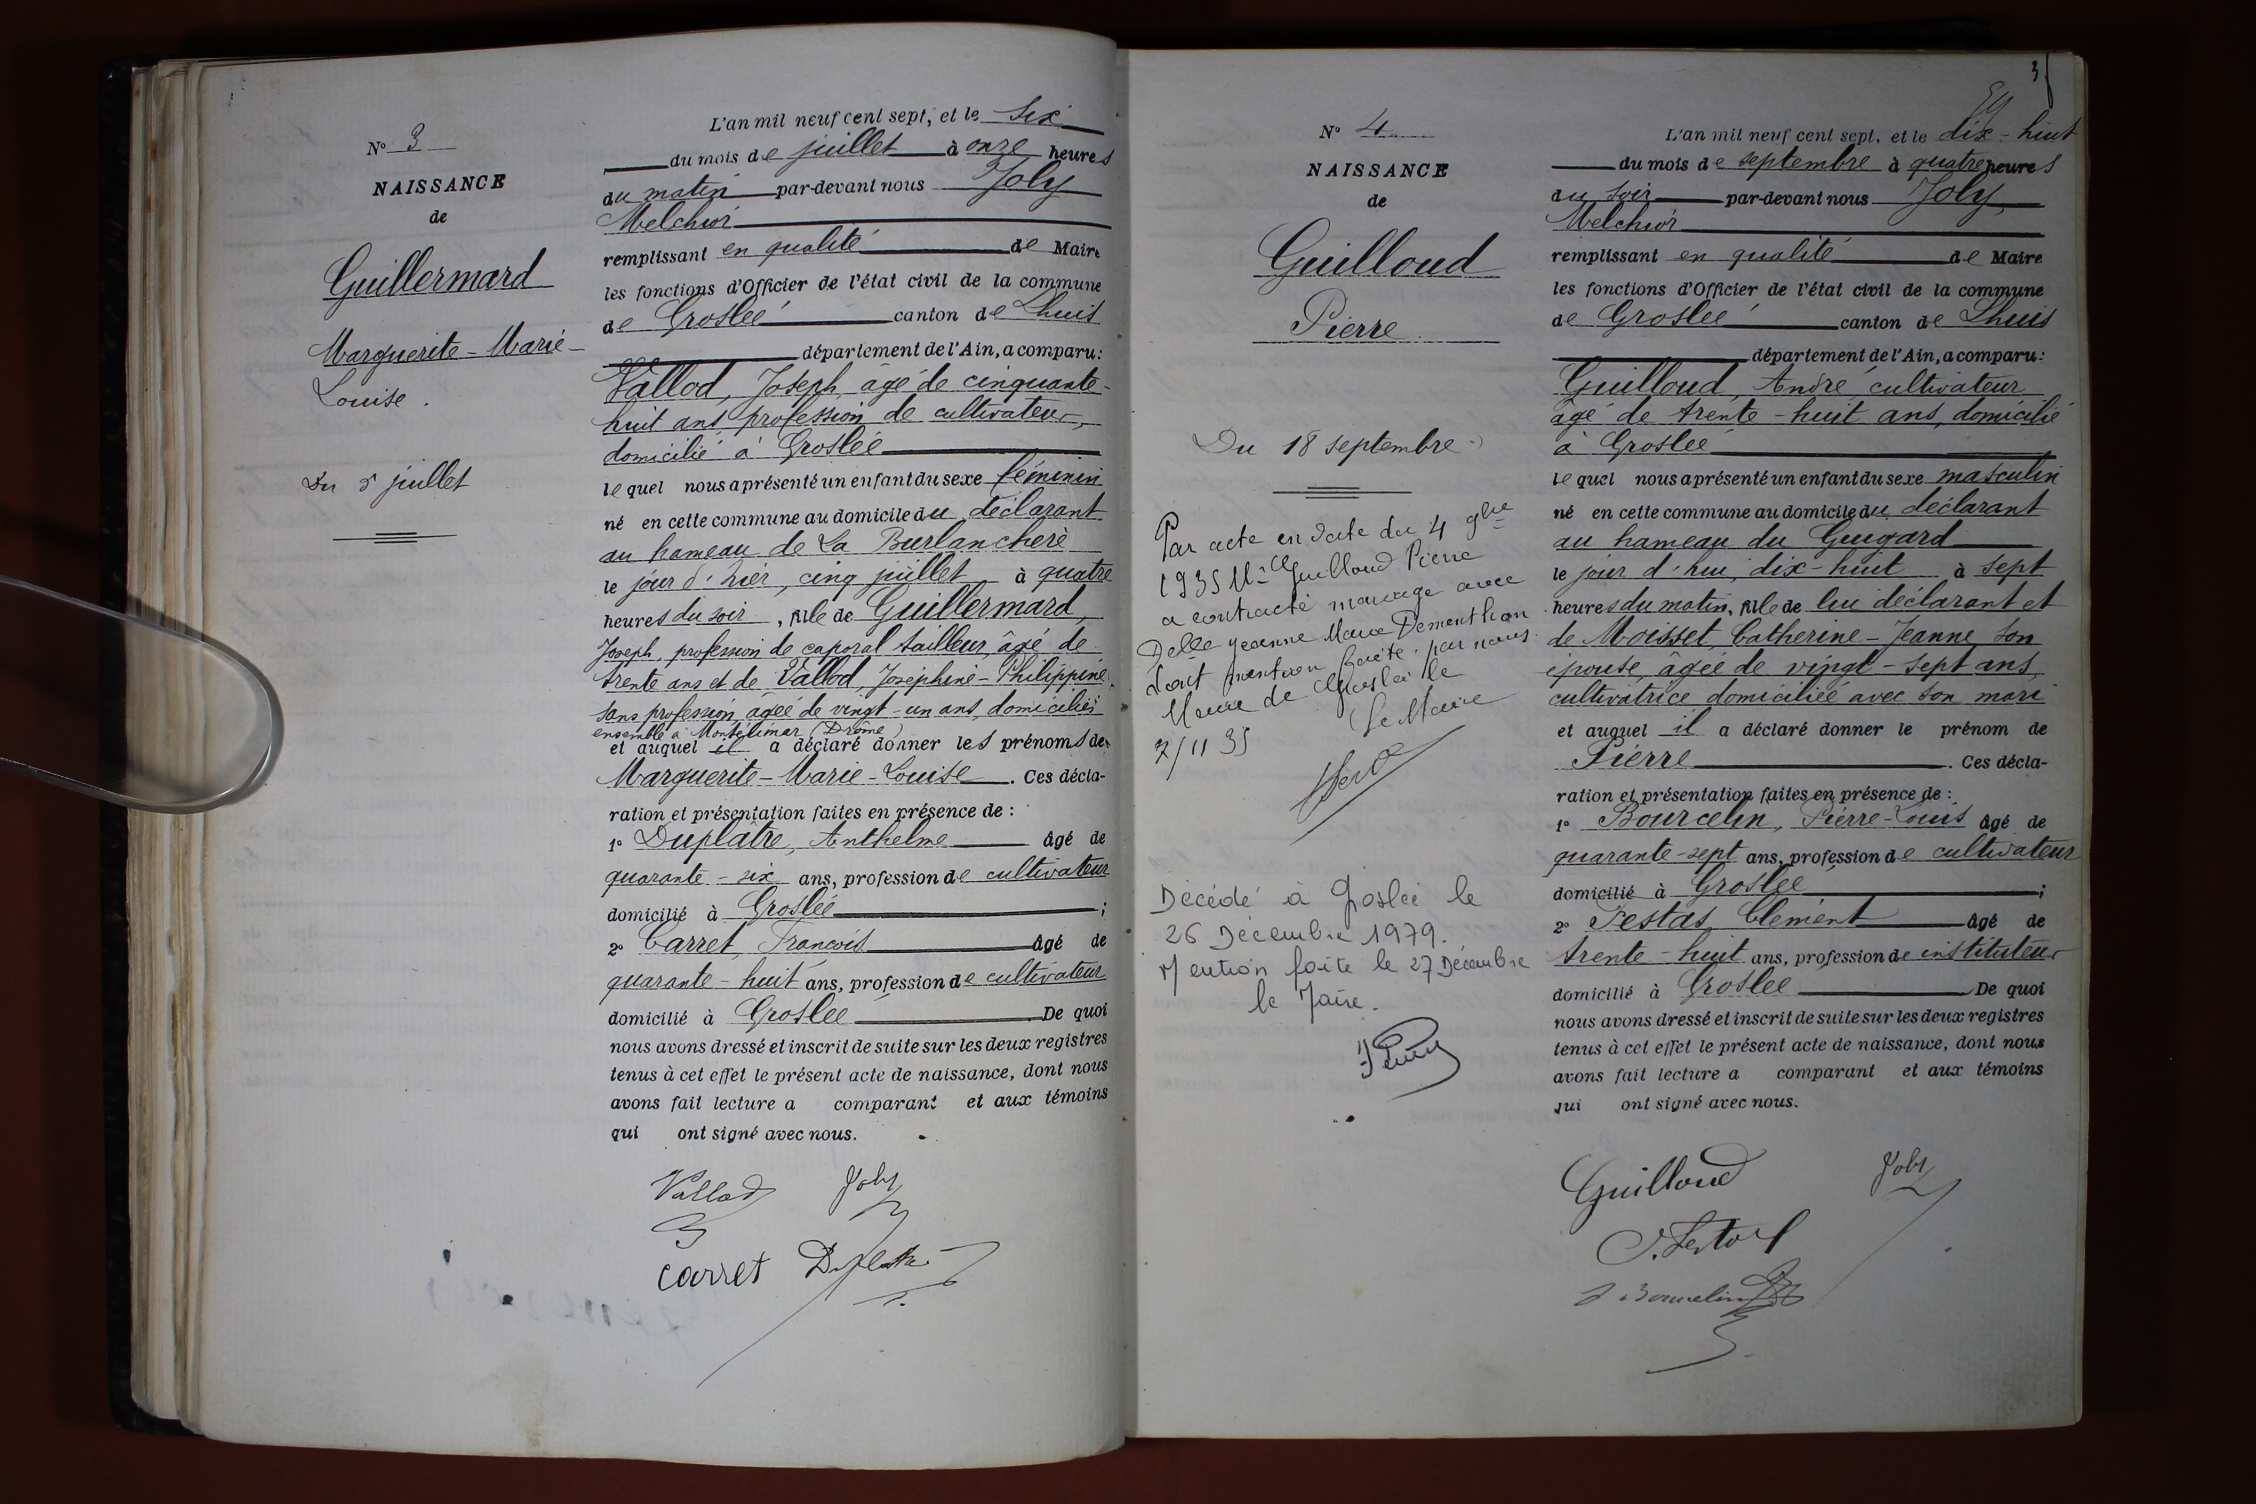 N° 3
NAISSANCE
de
Guillermard
Marguerite-Marie-
Louise.
Du 5 juillet
L'an mil neuf cent sept, et le six
du mois de juillet à onze heures
du matin par-devant nous Joly
Melchior
remplissant en qualité de Maire
les fonctions d'Officier de l'état civil de la commune
de Groslée canton de Lhuis
département de l'Ain, a comparu:
Vallod, Joseph, âgé de cinquante-
huit ans profession de cultivateur,
domicilié à Groslée
lequel nous a présenté un enfant du sexe féminin
né en cette commune au domicile du déclarant
au hameau de La Burlanchère
le jour d'hier, cinq juillet à quatre
heures du soir, fille de Guillermard,
Joseph, profession de caporal tailleur, âgé de
trente ans et de Vallod, Joséphine-Philippine,
sans profession, âgée de vingt-un ans, domiciliés
ensemble à Montélimar (Drôme)
et auquel il a déclaré donner les prénoms de
Marguerite-Marie-Louise. Ces décla-
ration et présentation faites en présence de :
1° Duplâtre, Anthelme âgé de
quarante-six ans, profession de cultivateur
domicilié à Groslée ;
2° Carret, François âgé de
quarante-huit ans, profession de cultivateur
domicilié à Groslée De quoi
nous avons dressé et inscrit de suite sur les deux registres
tenus à cet effet le présent acte de naissance, dont nous
avons fait lecture a comparant et aux témoins
qui ont signé avec nous.
Vallod Joly
Carret Duplatre
3
N° 4
NAISSANCE
de
Guilloud
Pierre
Du 18 septembre
Par acte en date du 4 9bre
1935 Mr Guilloud Pierre
a contracté mariage avec
Delle Jeanne Marie Dementhon
Dont mention faite par nous
Maire de Groslée le
7/11 35 Le Maire
Décédé à Groslée le
26 Décembre 1979.
Mention faite le 27 Décembre
le Maire.
L'an mil neuf cent sept, et le dix-huit
du mois de septembre à quatre heures
du soir par-devant nous Joly,
Melchior
remplissant en qualité de Maire
les fonctions d'Officier de l'état civil de la commune
de Groslée canton de Lhuis
département de l'Ain, a comparu:
Guilloud, André cultivateur
âgé de trente-huit ans, domicilié
à Groslée
lequel nous a présenté un enfant du sexe masculin
né en cette commune au domicile du déclarant
au hameau du Guigard
le jour d'hui, dix-huit à sept
heures du matin, fils de lui déclarant et
de Moisset, Catherine-Jeanne, son
épouse, âgée de vingt-sept ans,
cultivatrice domiciliée avec son mari
et auquel il a déclaré donner le prénom de
Pierre. Ces décla-
ration et présentation faites en présence de :
1° Bourcelin, Pierre-Louis âgé de
quarante-sept ans, profession de cultivateur
domicilié à Groslée ;
2° Festas, Clément âgé de
trente-huit ans, profession de instituteur
domicilié à Groslée De quoi
nous avons dressé et inscrit de suite sur les deux registres
tenus à cet effet le présent acte de naissance, dont nous
avons fait lecture a comparant et aux témoins
qui ont signé avec nous.
Guilloud Joly
Bourcelin